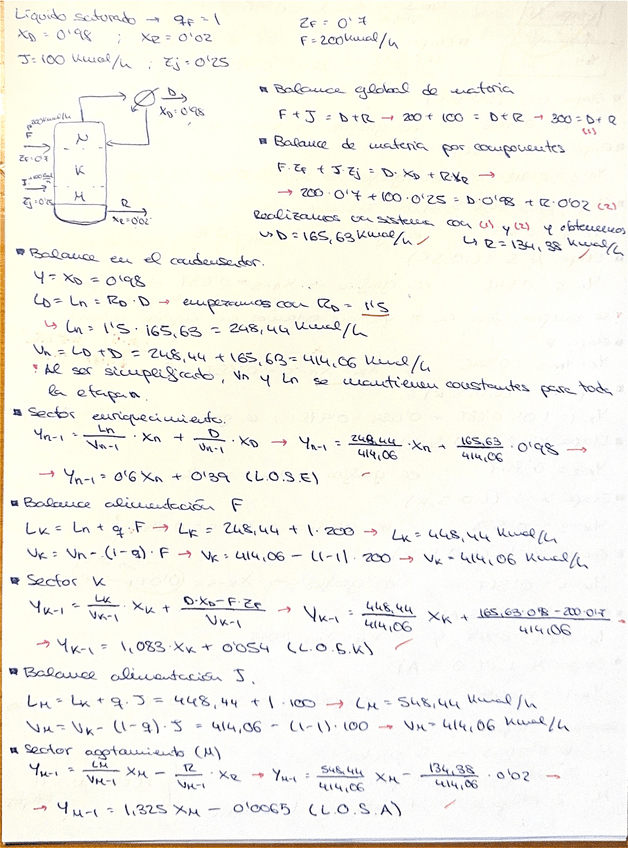 Líquido saturado → qF = 1
ZF = 0'7
XD = 0'98 ; XR = 0'02
F = 200 Kmol/h
J = 100 Kmol/h ; Zj = 0'25
▪ Balance global de materia
F + J = D + R → 200 + 100 = D + R → 300 = D + R (1)
▪ Balance de materia por componentes
F · ZF + J · Zj = D · XD + R XR →
→ 200 · 0'7 + 100 · 0'25 = D · 0'98 + R · 0'02 (2)
Realizamos un sistema con (1) y (2) y obtenemos
↳ D = 165,63 Kmol/h
↳ R = 134,38 Kmol/h
D
XD = 0'98
F
ZF = 0'7
N
K
M
Zj = 0'25
R
XR = 0'02
▪ Balance en el condensador.
Y = XD = 0'98
LD = Ln = RD · D → empezamos con RD = 1'5
↳ Ln = 1'5 · 165,63 = 248,44 Kmol/h
Vn = LD + D = 248,44 + 165,63 = 414,06 Kmol/h
Al ser simplificado, Vn y Ln se mantienen constantes para toda
la etapa n.
▪ Sector enriquecimiento.
Yn-1 = Ln/Vn-1 · Xn + D/Vn-1 · XD → Yn-1 = 248,44/414,06 · Xn + 165,63/414,06 · 0'98 →
→ Yn-1 = 0'6 Xn + 0'39 (L.O.S.E)
▪ Balance alimentación F
LK = Ln + q · F → LK = 248,44 + 1 · 200 → LK = 448,44 Kmol/h
VK = Vn - (1-q) · F → VK = 414,06 - (1-1) · 200 → VK = 414,06 Kmol/h
▪ Sector K
YK-1 = LK/VK-1 · XK + D·XD - F·ZF/VK-1 → YK-1 = 448,44/414,06 XK + 165,63·0'98 - 200·0'7/414,06 →
→ YK-1 = 1,083 · XK + 0'054 (L.O.S.K)
▪ Balance alimentación J.
LM = LK + q · J = 448,44 + 1 · 100 → LM = 548,44 Kmol/h
VM = VK - (1-q) · J = 414,06 - (1-1) · 100 → VM = 414,06 Kmol/h
▪ Sector agotamiento (M)
YM-1 = LM/VM-1 XM - R/VM-1 · XR → YM-1 = 548,44/414,06 XM - 134,38/414,06 · 0'02 →
→ YM-1 = 1,325 XM - 0'0065 (L.O.S.A)